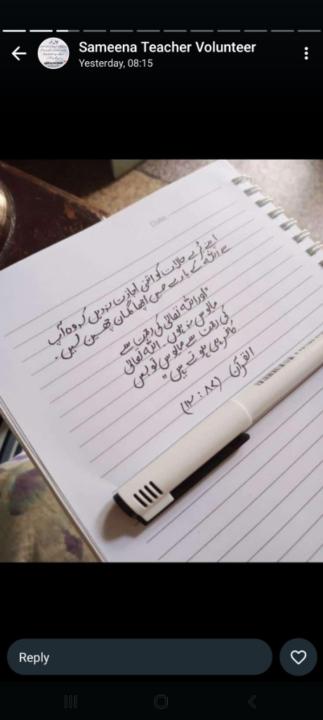 Sameena Teacher Volunteer
Yesterday, 08:15
Date
اپنے بُرے حالات کو اتنی اجازت نہ دیں کہ وہ آپ
سے اللہ کے بارے میں اچھا گمان چھین لیں۔
"اور اللہ تعالیٰ کی رحمت سے
مایوس نہ ہوں۔ اللہ تعالیٰ
کی رحمت سے مایوس تو بس
کافر ہی ہوتے ہیں"
القرآن (۱۲:۸۷)
Reply